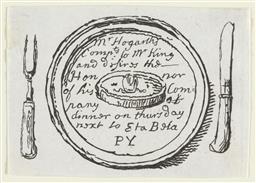 Mr Hogarth's
Comp.ts to Mr King
and desires the
Hon nor
of his Com
pany at
dinner on thursday
next to Eta Beta
PY